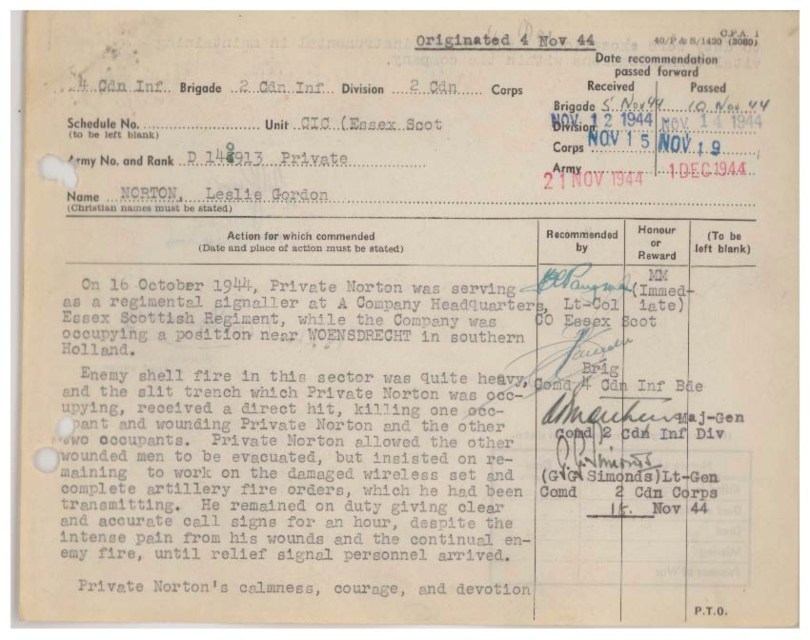 Originated 4 Nov 44
C.F.A. 1
40/P & S/1430 (3080)
Date recommendation
passed forward
Received Passed
4 Cdn Inf Brigade 2 Cdn Inf Division 2 Cdn Corps
Brigade 5 Nov 44 10 Nov 44
Schedule No. Unit CIC (Essex Scot
(to be left blank)
Division NOV 12 1944 NOV 14 1944
Corps NOV 15 NOV 19
Army No. and Rank D 14 913 Private
Army 21 NOV 1944 1 DEC 1944
Name NORTON, Leslie Gordon
(Christian names must be stated)
Action for which commended
(Date and place of action must be stated)
Recommended
by
Honour
or
Reward
(To be
left blank)
On 16 October 1944, Private Norton was serving
as a regimental signaller at A Company Headquarters,
Essex Scottish Regiment, while the Company was
occupying a position near WOENSDRECHT in southern
Holland.
Enemy shell fire in this sector was quite heavy,
and the slit trench which Private Norton was occ-
upying, received a direct hit, killing one occ-
pant and wounding Private Norton and the other
two occupants. Private Norton allowed the other
wounded men to be evacuated, but insisted on re-
maining to work on the damaged wireless set and
complete artillery fire orders, which he had been
transmitting. He remained on duty giving clear
and accurate call signs for an hour, despite the
intense pain from his wounds and the continual en-
emy fire, until relief signal personnel arrived.
Private Norton's calmness, courage, and devotion
MM
(Immed-
iate)
Lt-Col
CO Essex Scot
Brig
Comd 4 Cdn Inf Bde
Maj-Gen
comd 2 cdn Inf Div
(G.G. Simonds)Lt-Gen
Comd 2 Cdn Corps
15. Nov 44
P.T.O.